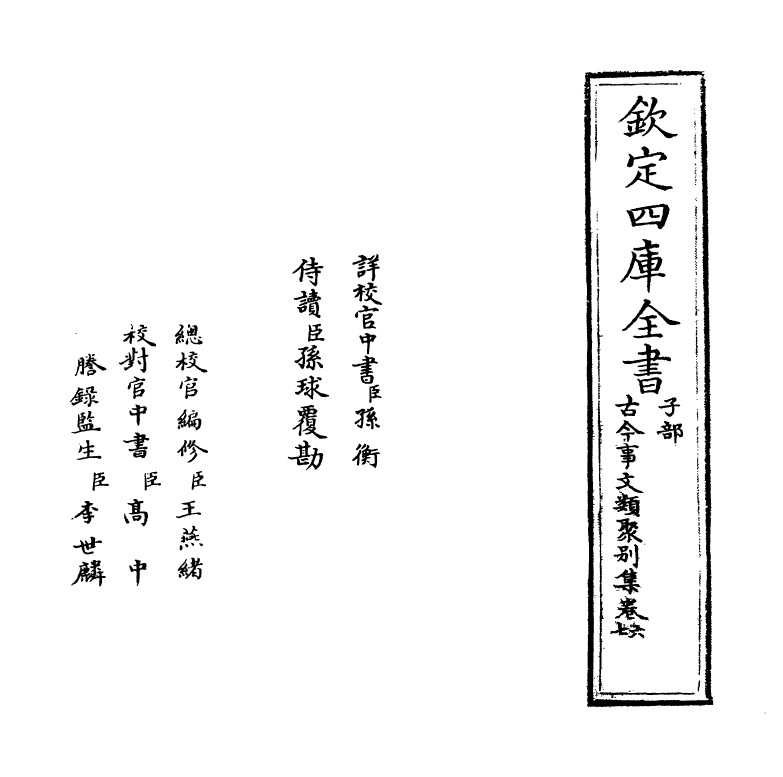 欽定四庫全書
子部
古今事文類聚別集卷六七
詳校官中書臣孫衡
侍讀臣孫球覆勘
總校官編修臣王燕緒
校對官中書臣高中
謄錄監生臣李世麟